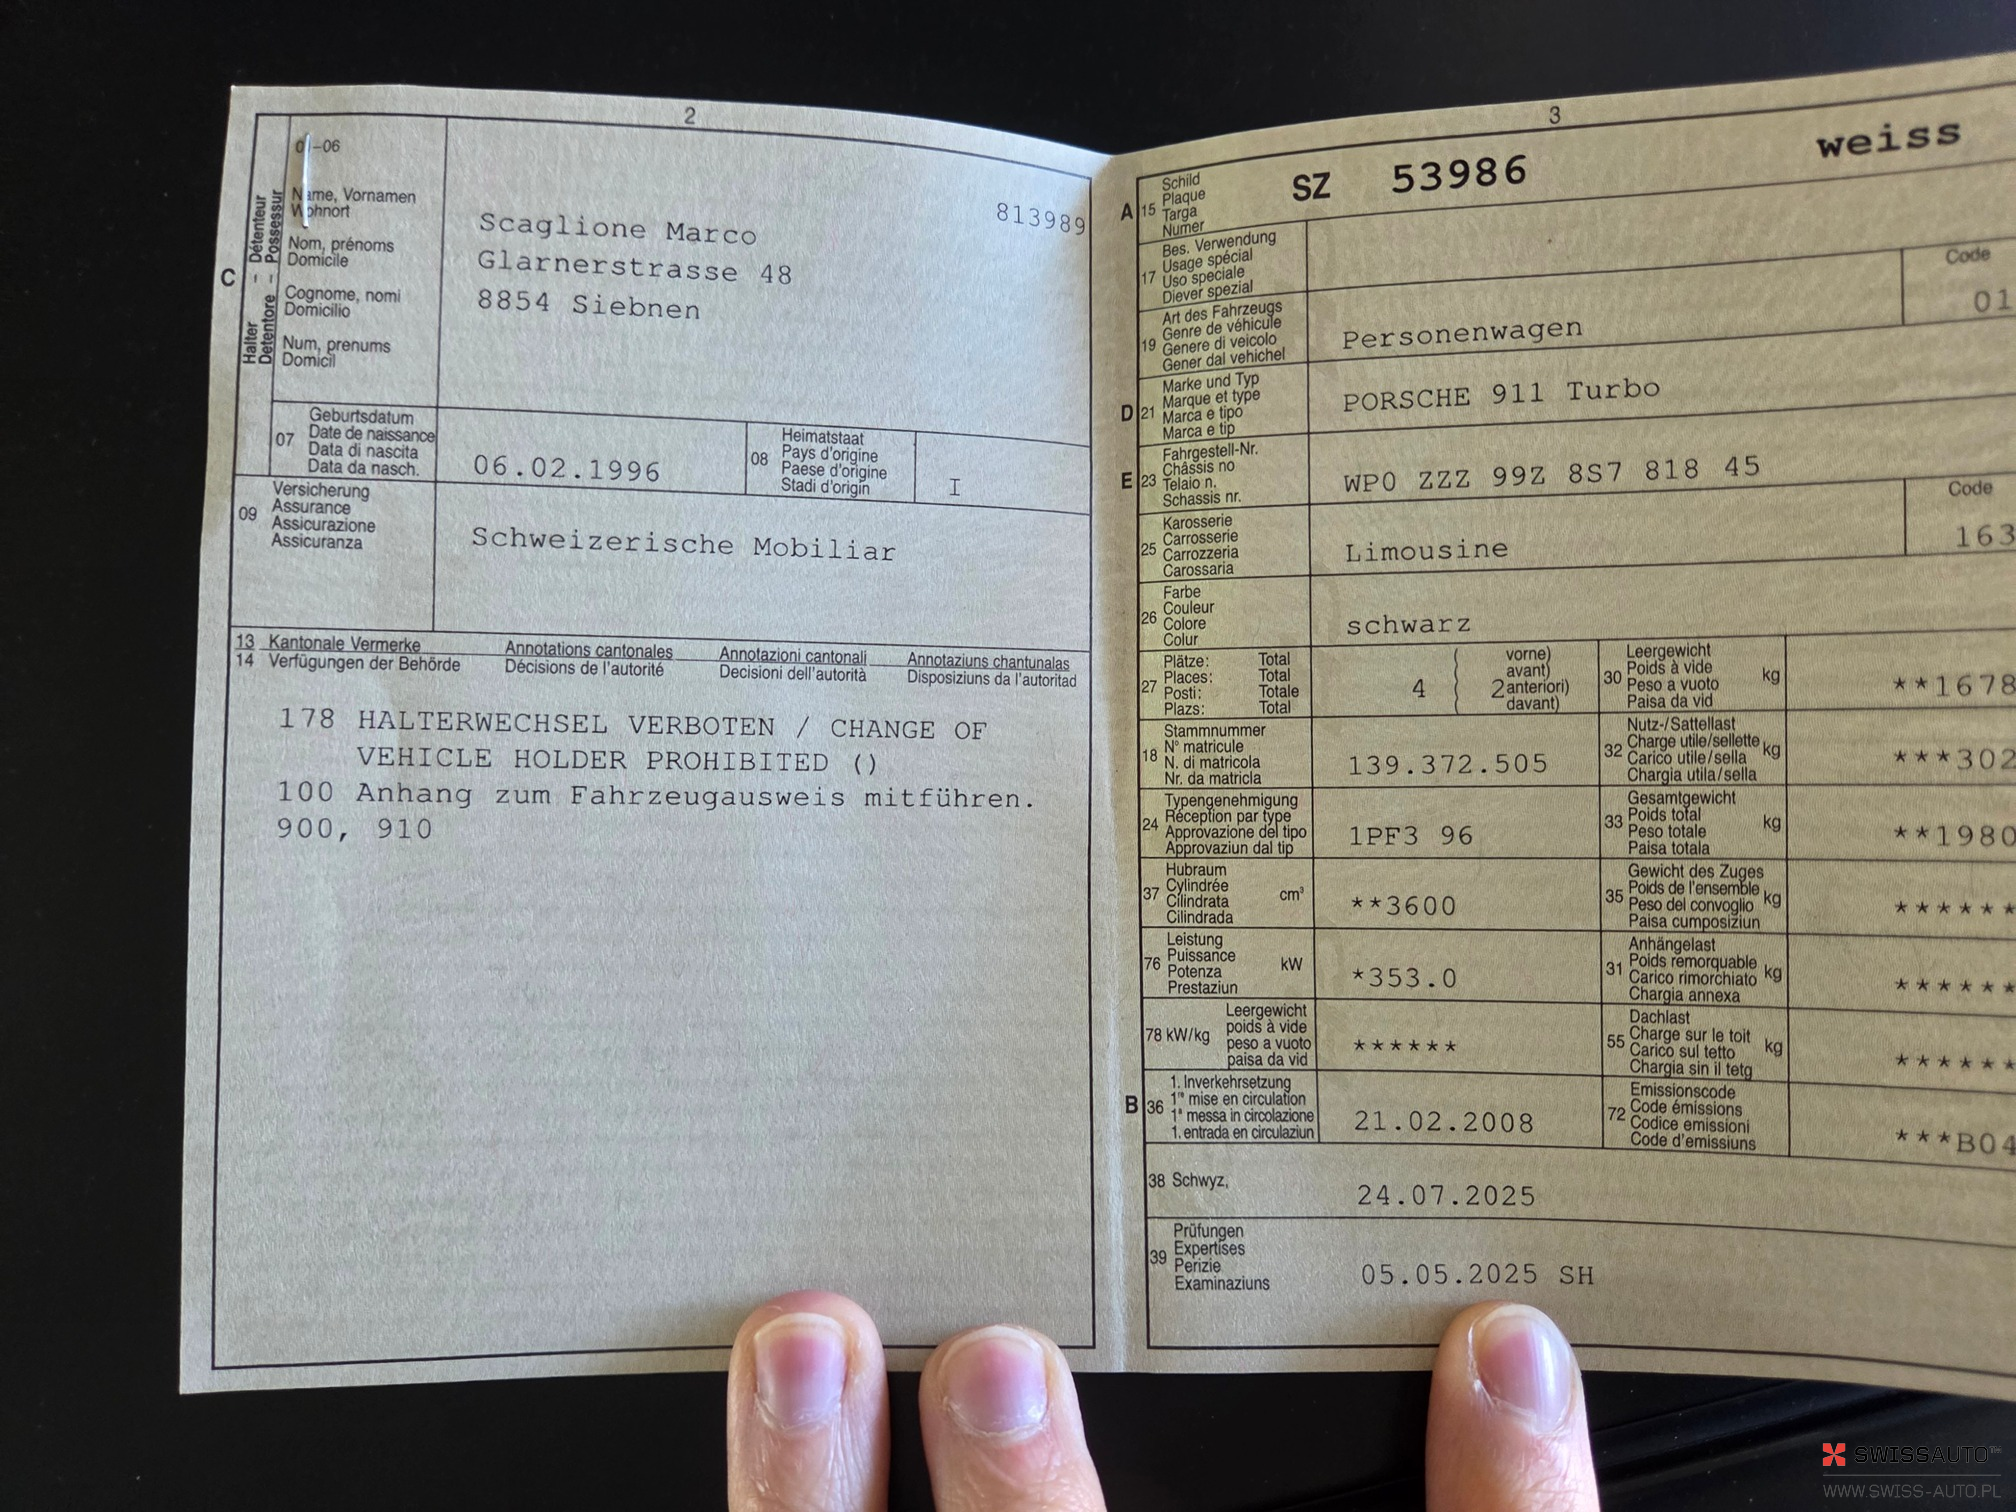 2
01-06
Name, Vornamen
Wohnort
Nom, prénoms
Domicile
Cognome, nomi
Domicilio
Num, prenums
Domicil
C
Halter – Détenteur
Detentore – Possessur
813989
Scaglione Marco
Glarnerstrasse 48
8854 Siebnen
07
Geburtsdatum
Date de naissance
Data di nascita
Data da nasch.
06.02.1996
08
Heimatstaat
Pays d'origine
Paese d'origine
Stadi d'origin
I
09
Versicherung
Assurance
Assicurazione
Assicuranza
Schweizerische Mobiliar
13 Kantonale Vermerke Annotations cantonales Annotazioni cantonali Annotaziuns chantunalas
14 Verfügungen der Behörde Décisions de l'autorité Decisioni dell'autorità Disposiziuns da l'autoritad
178 HALTERWECHSEL VERBOTEN / CHANGE OF
VEHICLE HOLDER PROHIBITED ()
100 Anhang zum Fahrzeugausweis mitführen.
900, 910
3
A 15
Schild
Plaque
Targa
Numer
SZ 53986 weiss
17
Bes. Verwendung
Usage spécial
Uso speciale
Diever spezial
19
Art des Fahrzeugs
Genre de véhicule
Genere di veicolo
Gener dal vehichel
Personenwagen
Code
01
D 21
Marke und Typ
Marque et type
Marca e tipo
Marca e tip
PORSCHE 911 Turbo
E 23
Fahrgestell-Nr.
Châssis no
Telaio n.
Schassis nr.
WP0 ZZZ 99Z 8S7 818 45
25
Karosserie
Carrosserie
Carrozzeria
Carossaria
Limousine
Code
163
26
Farbe
Couleur
Colore
Colur
schwarz
27
Plätze: Total
Places: Total
Posti: Totale
Plazs: Total
4
2
vorne)
avant)
anteriori)
davant)
30
Leergewicht
Poids à vide
Peso a vuoto
Paisa da vid
kg
**1678
18
Stammnummer
N° matricule
N. di matricola
Nr. da matricla
139.372.505
32
Nutz-/Sattellast
Charge utile/sellette
Carico utile/sella
Chargia utila/sella
kg
***302
24
Typengenehmigung
Réception par type
Approvazione del tipo
Approvaziun dal tip
1PF3 96
33
Gesamtgewicht
Poids total
Peso totale
Paisa totala
kg
**1980
37
Hubraum
Cylindrée
Cilindrata
Cilindrada
cm³
**3600
35
Gewicht des Zuges
Poids de l'ensemble
Peso del convoglio
Paisa cumposiziun
kg
******
76
Leistung
Puissance
Potenza
Prestaziun
kW
*353.0
31
Anhängelast
Poids remorquable
Carico rimorchiato
Chargia annexa
kg
******
78 kW/kg
Leergewicht
poids à vide
peso a vuoto
paisa da vid
******
55
Dachlast
Charge sur le toit
Carico sul tetto
Chargia sin il tetg
kg
******
B 36
1. Inverkehrsetzung
1re mise en circulation
1a messa in circolazione
1. entrada en circulaziun
21.02.2008
72
Emissionscode
Code émissions
Codice emissioni
Code d'emissiuns
***B04
38 Schwyz,
24.07.2025
39
Prüfungen
Expertises
Perizie
Examinaziuns
05.05.2025 SH
SWISSAUTO™
WWW.SWISS-AUTO.PL